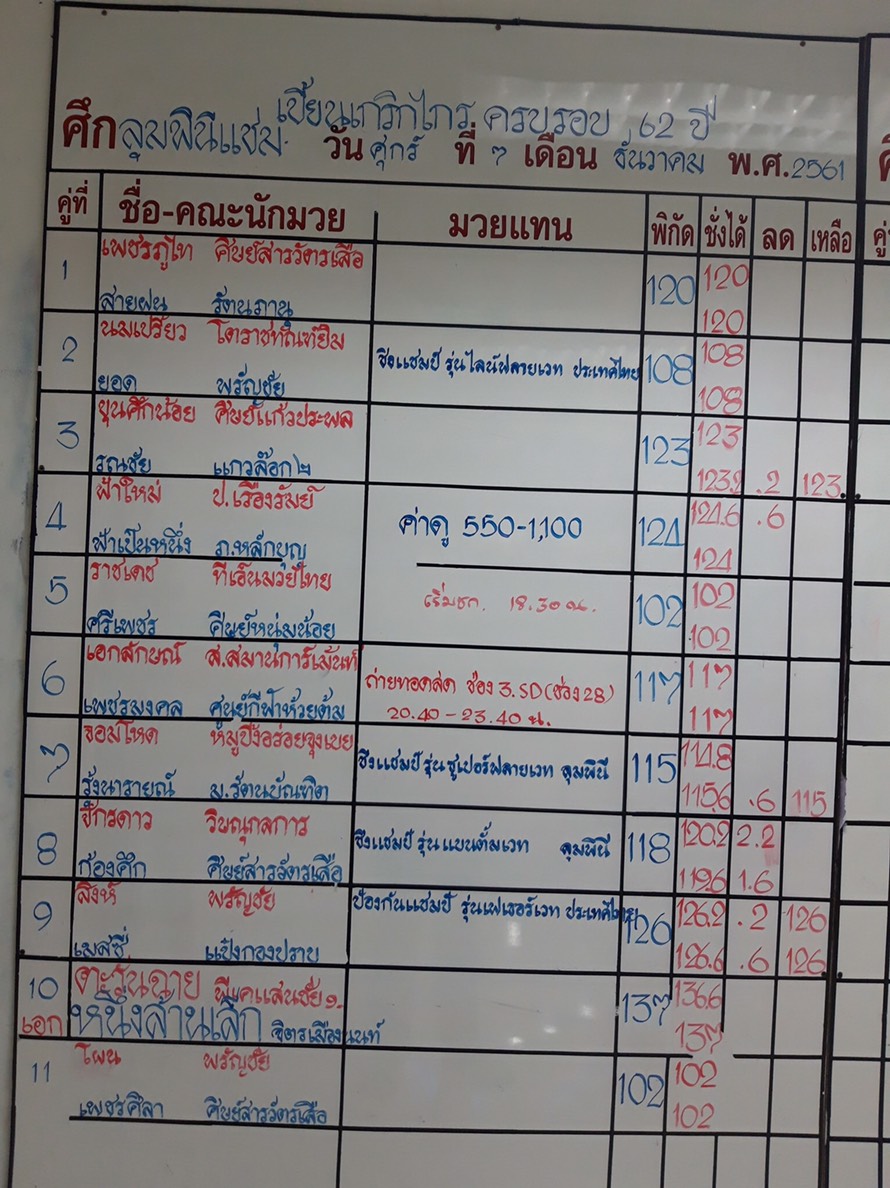 ศึกลุมพินีแชมเปี้ยนเกริกไกร ครบรอบ 62 ปี
วัน ศุกร์ ที่ ๗ เดือน ธันวาคม พ.ศ. 2561
คู่ที่ ชื่อ-คณะนักมวย มวยแทน พิกัด ชั่งได้ ลด เหลือ คู่
1 เพชรภูไท ศิษย์สารวัตรเสือ 120 120
สายฝน รัตนภานุ 120
2 นมเปรี้ยว โคราชทัณฑ์ยิม ชิงแชมป์ รุ่นไลน์ฟลายเวท ประเทศไทย 108 108
ยอด พรัญชัย 108
3 ขุนศึกน้อย ศิษย์แก้วประพล 123 123
รณชัย แกวล๊อก๒ 123.2 .2 123
4 ฟ้าใหม่ ป.เรืองรัมย์ ค่าดู 550-1,100 124 124.6 .6
ฟ้าเป็นหนึ่ง ภ.หลักบุญ 124
5 ราชเดช ทีเอ็นมวยไทย เริ่มชก. 18.30 น. 102 102
ศรีเพชร ศิษย์หนุ่มน้อย 102
6 เอกลักษณ์ ส.สมานการ์เม้นท์ ถ่ายทอดสด ช่อง 3.SD (ช่อง 28) 11๗ 11๗
เพชรมงคล ศูนย์กีฬาห้วยต้ม 20.40 - 23.40 น. 11๗
๗ จอมโหด หมูปิ้งอร่อยจุงเบย ชิงแชมป์ รุ่นซูเปอร์ฟลายเวท ลุมพินี 115 114.8
รุ่งนารายณ์ ม.รัตนบัณฑิต 115.6 .6 115
8 จักรดาว วิษณุกลการ ชิงแชมป์ รุ่นแบนตั้มเวท ลุมพินี 118 120.2 2.2
ก้องศึก ศิษย์สารวัตรเสือ 119.6 1.6
9 สิงห์ พรัญชัย ป้องกันแชมป์ รุ่นเฟเธอร์เวท ประเทศไทย 126 126.2 .2 126
เมสซี่ แป๋งกองปราบ 126.6 .6 126
10 ตะวันฉาย พี.เคแสนชัย๑. 13๗ 136.6
เอก หนึ่งล้านเล็ก จิตรเมืองนนท์ 13๗
11 โผน พรัญชัย 102 102
เพชรศิลา ศิษย์สารวัตรเสือ 102